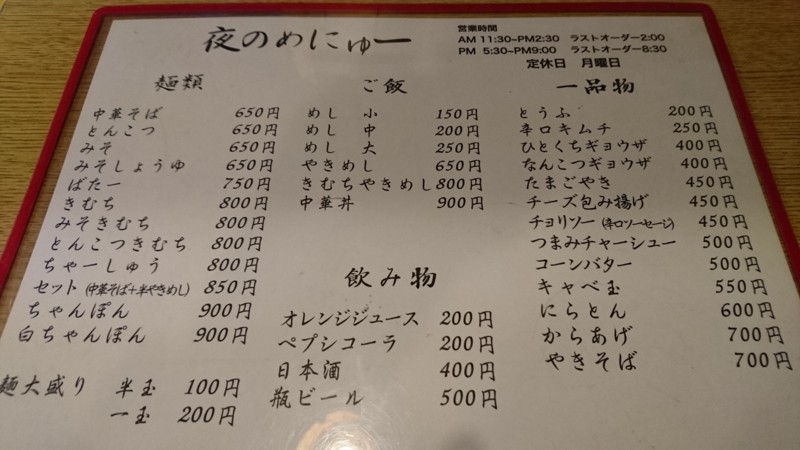 夜のめにゅー
営業時間
AM 11:30~PM2:30 ラストオーダー2:00
PM 5:30~PM9:00 ラストオーダー8:30
定休日 月曜日
麺類
中華そば 650円
とんこつ 650円
みそ 650円
みそしょうゆ 650円
ばたー 750円
きむち 800円
みそきむち 800円
とんこつきむち 800円
ちゃーしゅう 800円
セット (中華そば+半やきめし) 850円
ちゃんぽん 900円
白ちゃんぽん 900円
麺大盛り 半玉 100円
一玉 200円
ご飯
めし 小 150円
めし 中 200円
めし 大 250円
やきめし 650円
きむちやきめし 800円
中華丼 900円
飲み物
オレンジジュース 200円
ペプシコーラ 200円
日本酒 400円
瓶ビール 500円
一品物
とうふ 200円
辛口キムチ 250円
ひとくちギョウザ 400円
なんこつギョウザ 400円
たまごやき 450円
チーズ包み揚げ 450円
チョリソー (辛口ソーセージ) 450円
つまみチャーシュー 500円
コーンバター 500円
キャベ玉 550円
にらとん 600円
からあげ 700円
やきそば 700円